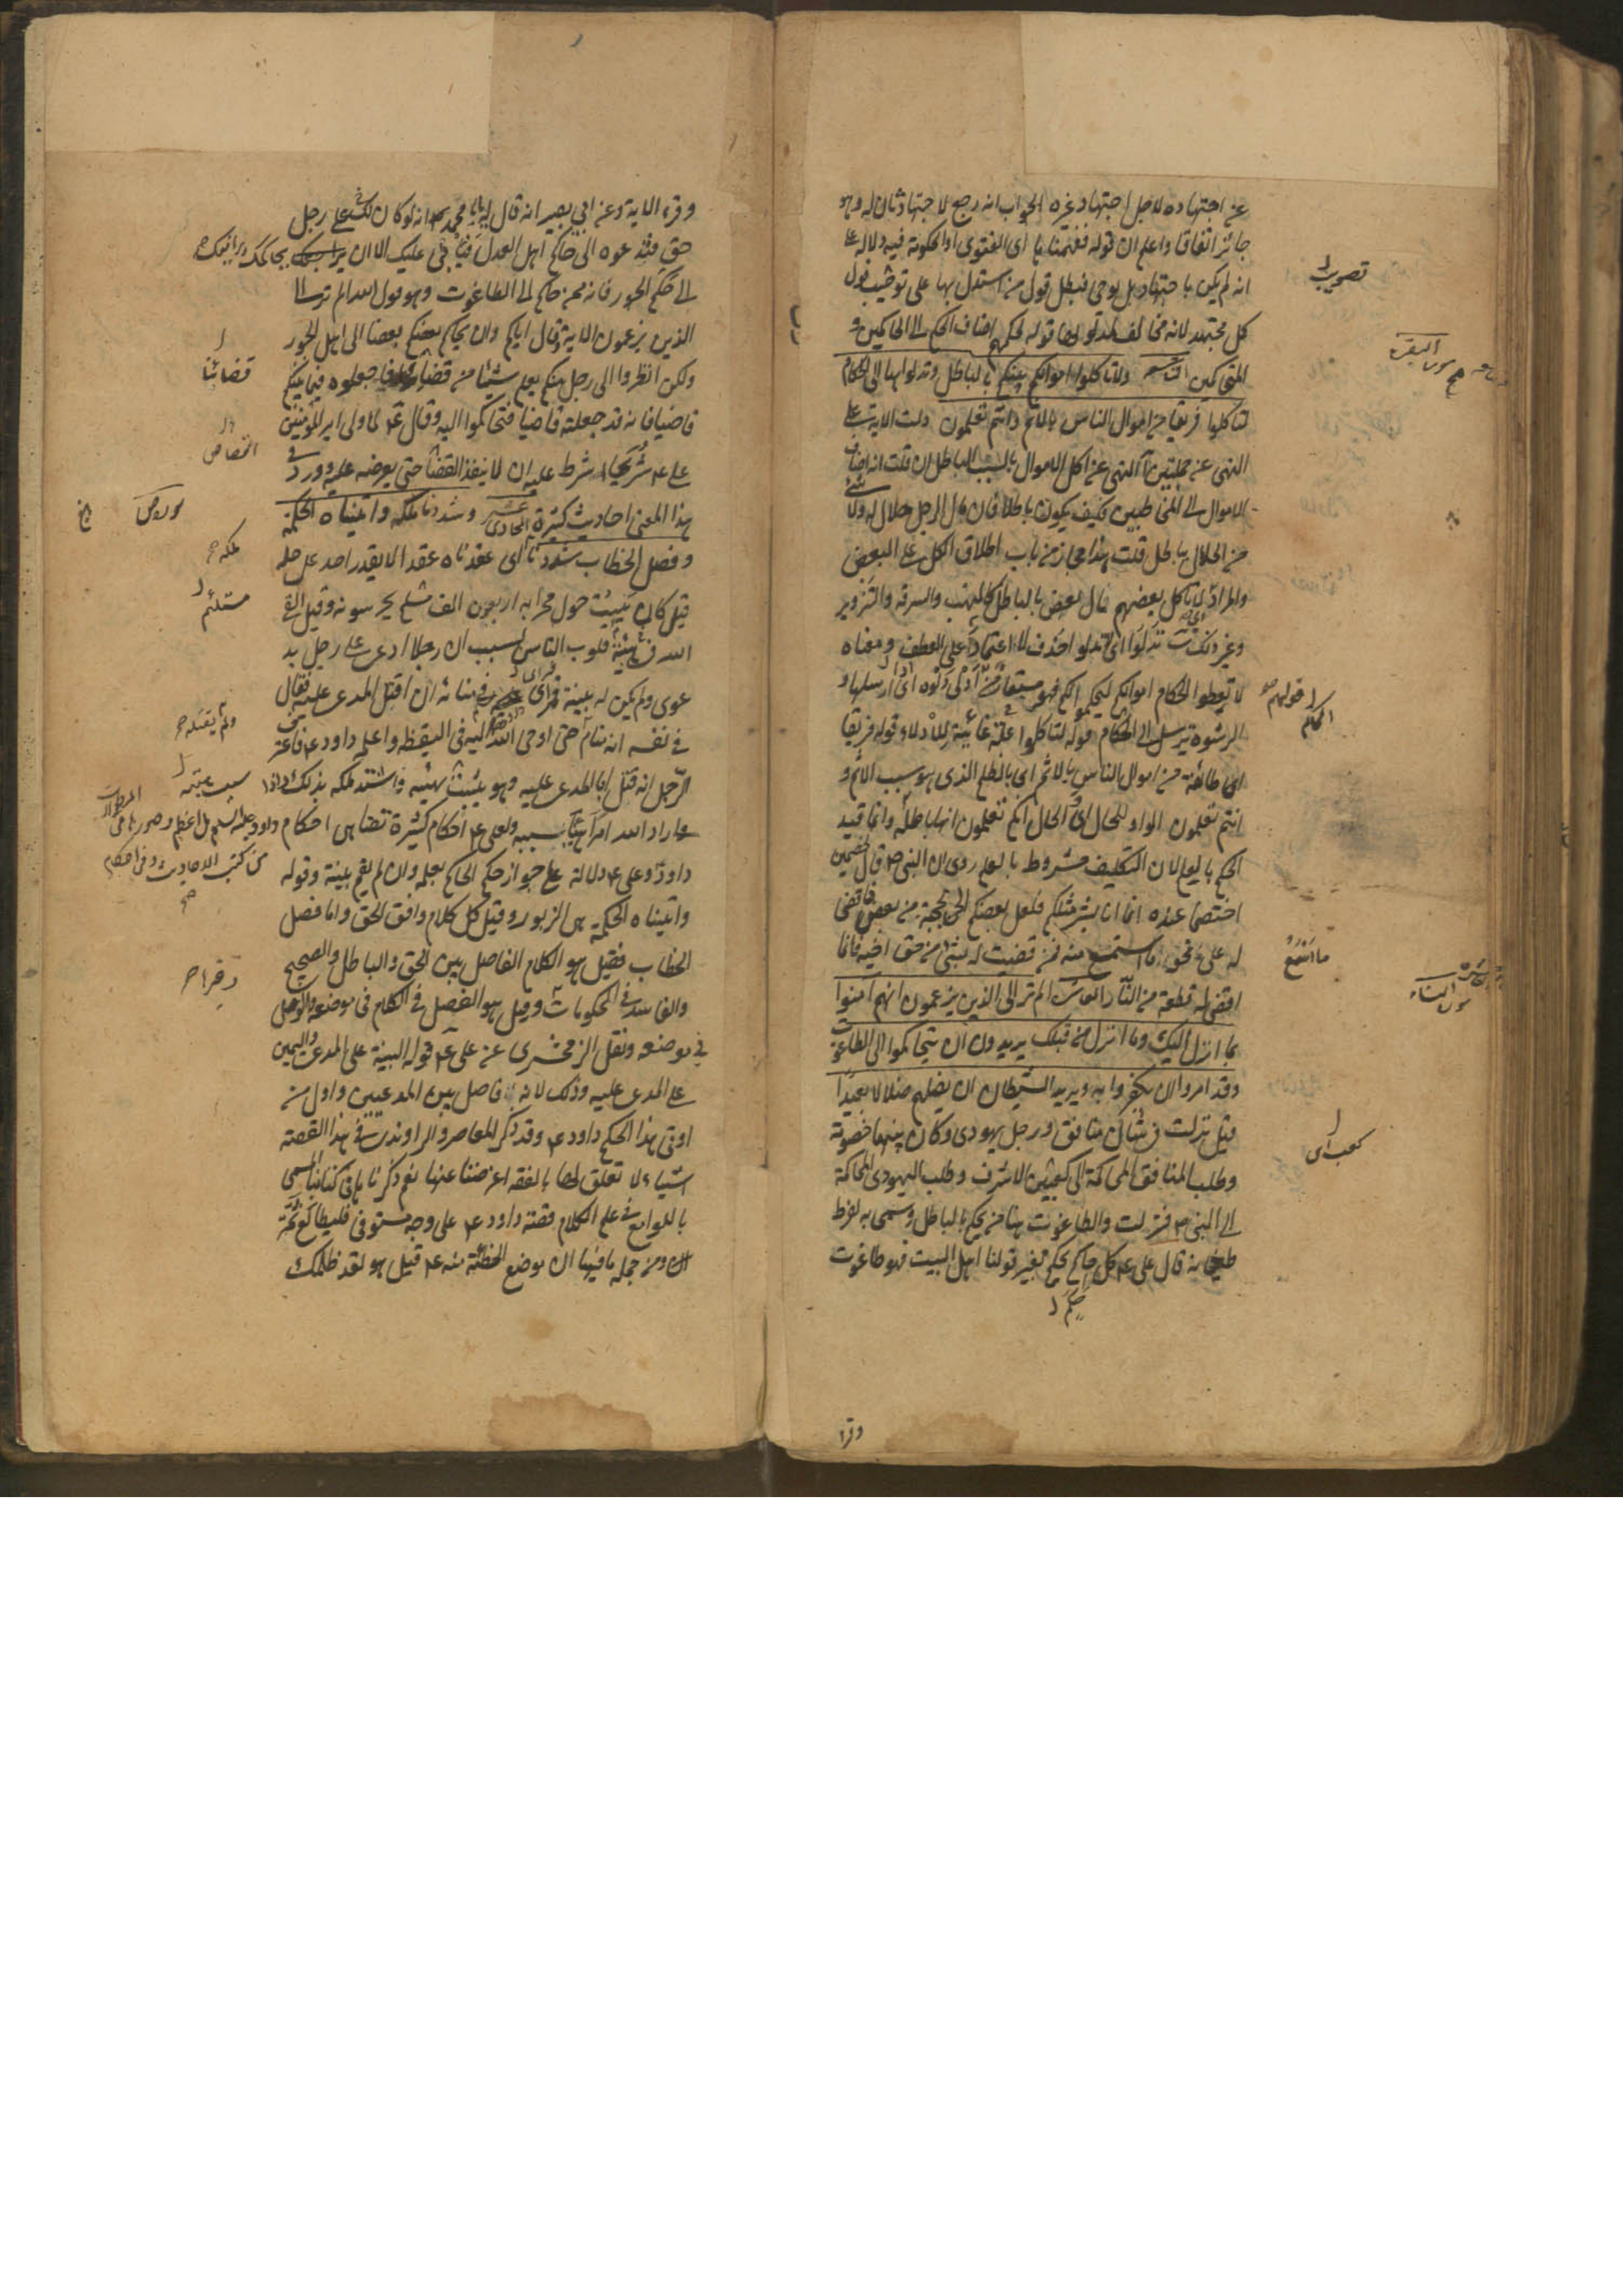 عن اجتهاده لاجل اجتهاد غيره الجواب انه رجع لاجتهاد ثان له وهو
جائز اتفاقا واعلم ان قوله ففهمناها اى الفتوى او الحكومة فيه دلالة على
انه لم يكن باجتهاد بل بوحى فبطل قول من استدل بها على تصويب قول
كل مجتهد لانه مخالف قوله لحكمهم اضاف الحكم الى الحاكمين و
المتحاكمين ولا تاكلوا اموالكم بينكم بالباطل وتدلوا بها الى الحكام
لتاكلوا فريقا من اموال الناس بالاثم وانتم تعلمون دلت الاية على
النهى عن اكل الاموال بالسبب الباطل ان قلت انه اضاف
الاموال الى المخاطبين فكيف يكون باطلا فان مال الرجل حلال له ولا شئ
من الحلال بباطل قلت هذا مجاز من باب اطلاق الكل على البعض
والمراد لا ياكل بعضهم مال بعض بالباطل كالنهب والسرقة والتزوير
وغير ذلك وتدلوا اى لا تدلوا حذف لا اعتمادا على العطف ومعناه
لا تعطوا الحكام اموالكم ليحكموا لكم فهو مستعار من ادلى دلوه اى ارسلها و
الرشوة ترسل الى الحكام قوله لتاكلوا علة غائية للادلاء وقوله فريقا
اى طائفة من اموال الناس بالاثم اى بالظلم الذى هو سبب الاثم و
انتم تعلمون الواو للحال اى والحال انكم تعلمون انها باطلة وانما قيد
الحكم بالعلم لان التكليف مشروط بالعلم روى ان النبى ص قال لخصمين
اختصما عنده انما انا بشر مثلكم فلعل بعضكم الحن بحجته من بعض فاقضى
له على نحو ما استمع منه فمن قضيت له بشئ من حق اخيه فانما
اقضى له قطعة من النار العاشرة الم تر الى الذين يزعمون انهم آمنوا
بما انزل اليك وما انزل من قبلك يريدون ان يتحاكموا الى الطاغوت
وقد امروا ان يكفروا به ويريد الشيطان ان يضلهم ضلالا بعيدا
قيل نزلت فى شان منافق ورجل يهودى وكان بينهما خصومة
وطلب المنافق المحاكمة الى كعب بن الاشرف وطلب اليهودى المحاكمة
الى النبى ص فنزلت والطاغوت هنا من يحكم بالباطل وسمى به لفرط
طغيانه قال على ع كل حاكم يحكم بغير قولنا اهل البيت فهو طاغوت
تصويب
سورة البقرة
قولهم
الحكام
ما اسمع
سورة النساء
كعب اى
حكم
وقرا
وقرء الاية وعن ابى بصير انه قال له يا با محمد انه لو كان لك على رجل
حق فتدعوه الى حاكم اهل العدل فيابى عليك الا ان يرافعك يحاكمك
الى حكم الجور فانه ممن حاكم الى الطاغوت وهو قول الله الم تر الى
الذين يزعمون الاية وقال اياكم وان يحاكم بعضكم بعضا الى اهل الجور
ولكن انظروا الى رجل منكم يعلم شيئا من قضايانا فاجعلوه فيما بينكم
قاضيا فانه قد جعلته قاضيا فتحاكموا اليه وقال ع لما ولى امير المؤمنين
على ع شريحا شرط عليه ان لا ينفذ القضاء حتى يعرضه عليه وورد فى
هذا المعنى احاديث كثيرة الحادى عشر وشددنا ملكه وآتيناه الحكمة
وفصل الخطاب شددنا اى عقدناه عقدا لا يقدر احد على حله
قيل كان يبيت حول محرابه اربعون الف يحرسونه وقيل القى
الله هيبته فى قلوب الناس بسبب ان رجلا ادعى على رجل بد
عوى ولم يكن له بينة فراى فى منامه ان اقتل المدعى عليه فقال
فى نفسه انه منام حتى اوحى الله اليه فى اليقظة واعلم داود ع فاعترف
الرجل انه قتل ابا المدعى عليه واشتد ملكه بذلك
داود وعلى ع دلالة على جواز حكم الحاكم بعلمه وان لم يقم بينة وقوله
وآتيناه الحكمة هى الزبور وقيل كل كلام وافق الحق واما فصل
الخطاب فقيل هو الكلام الفاصل بين الحق والباطل والصحيح
والفاسد فى الحكومات وقيل هو الفصل فى الكلام فى موضعه والوصل
فى موضعه ونقل الزمخشرى عن على ع قوله البينة على المدعى واليمين
على المدعى عليه وذلك لانه فاصل بين المدعيين واول من
اوتى هذا الحكم داود ع وقد ذكر المعاصر والراوندى فى هذا القصة
اشياء لا تعلق لها بالفقه اعرضنا عنها نعم ذكرنا فى كتابنا المسمى
باللوامع فى علم الكلام قصة داود ع على وجه مستوفى فليطالع ثمة
ومن جملة ما فيها ان موضع الخطيئة منه ع قيل هو لقد ظلمك
قضائنا
سورة ص
ملكه
مستلئم
ولم يقتله